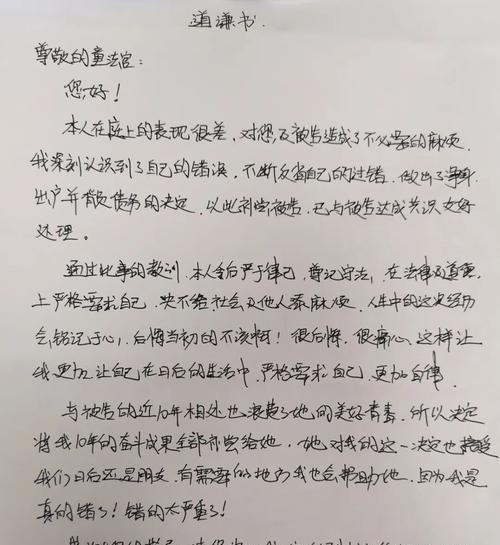 道谦书.
尊敬的童法官：
您好！
本人在庭上的表现很差，对您及被告造成了不必要的麻烦
我深刻认识到了自己的错误，不断反省自己的过错，做出了净身
出户并背负债务的决定，以此补偿被告，已与被告达成共识友好
处理。
通过此事的教训，本人今后严于律己，尊记守法，在法律及道德
上严格要求自己，决不给社会及他人添麻烦，人生中的这次经历
会铭记于心，后悔当初的不该啊！很后悔，很痛心，这样让
我更加让自己在日后的生活中，严格要求自己，更加自律.
与被告的近10年相处也浪费了她的美好青春，所以决定
将我10年的奋斗成果全部补偿给她，她对我的这一决定也接受
我们日后还是朋友，有需要的地方我也会帮助她，因为我是
真的错了！错的太严重了！